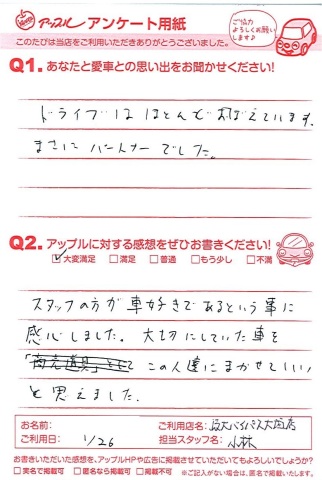 アップル アンケート用紙
ご協力
よろしくお願い
します♪
このたびは当店をご利用いただきありがとうございました。
Q1. あなたと愛車との思い出をお聞かせください!
ドライブは ほとんど おぼえています。
まさに パートナーでした。
Q2. アップルに対する感想をぜひお書きください!
☑大変満足 □満足 □普通 □もう少し □不満
スタッフの方が車好きであるという事に
感心しました。大切にしていた車を
「商売道具」として この人達にまかせていい
と思えました。
お名前: ご利用店名: 大店
ご利用日: 1/26 担当スタッフ名: 小林
お書きいただいた感想を、アップルHPや広告に掲載させていただいてもよろしいでしょうか?
□実名で掲載可 □匿名なら掲載可 □掲載不可 ※ご記入がない場合は、匿名で掲載いたします。